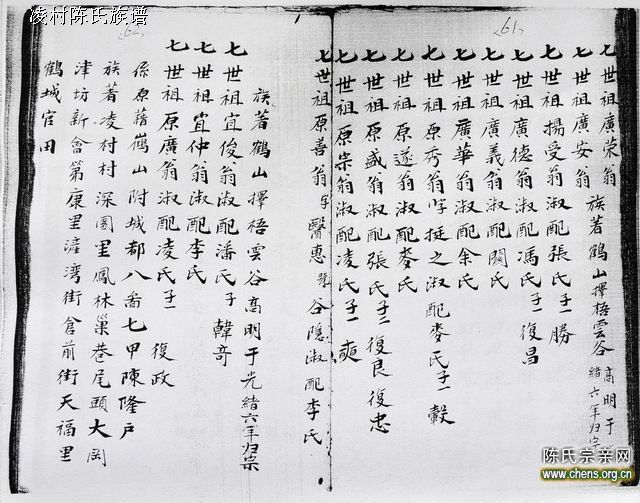 凌村陈氏族谱
61
七世祖廣荣翁 族著鶴山擇梧雲谷 高明于
緒六年归宗
七世祖廣安翁
七世祖揚受翁淑配張氏子一勝
七世祖廣德翁淑配馮氏子一復昌
七世祖廣義翁淑配関氏
七世祖廣華翁淑配余氏
七世祖原秀翁字挺之淑配麥氏子一穀
七世祖原遂翁淑配麥氏
七世祖原盛翁淑配張氏子二復良復忠
七世祖原宗翁淑配凌氏子一奭
七世祖原善翁字醫惠號谷隱淑配李氏
62
族著鶴山擇梧雲谷高明于光緒六年归宗
七世祖宜俊翁淑配潘氏子韓奇
七世祖宜仲翁淑配李氏
七世祖原廣翁淑配凌氏子一復政
係原籍鶴山附城都八啚七甲陳隆戶
族著凌村村深圂里鳳林巢巷尾頭大岡
津坊新會第康里滻湾街倉前街天福里
鶴城官田
陈氏宗亲网
www.chens.org.cn